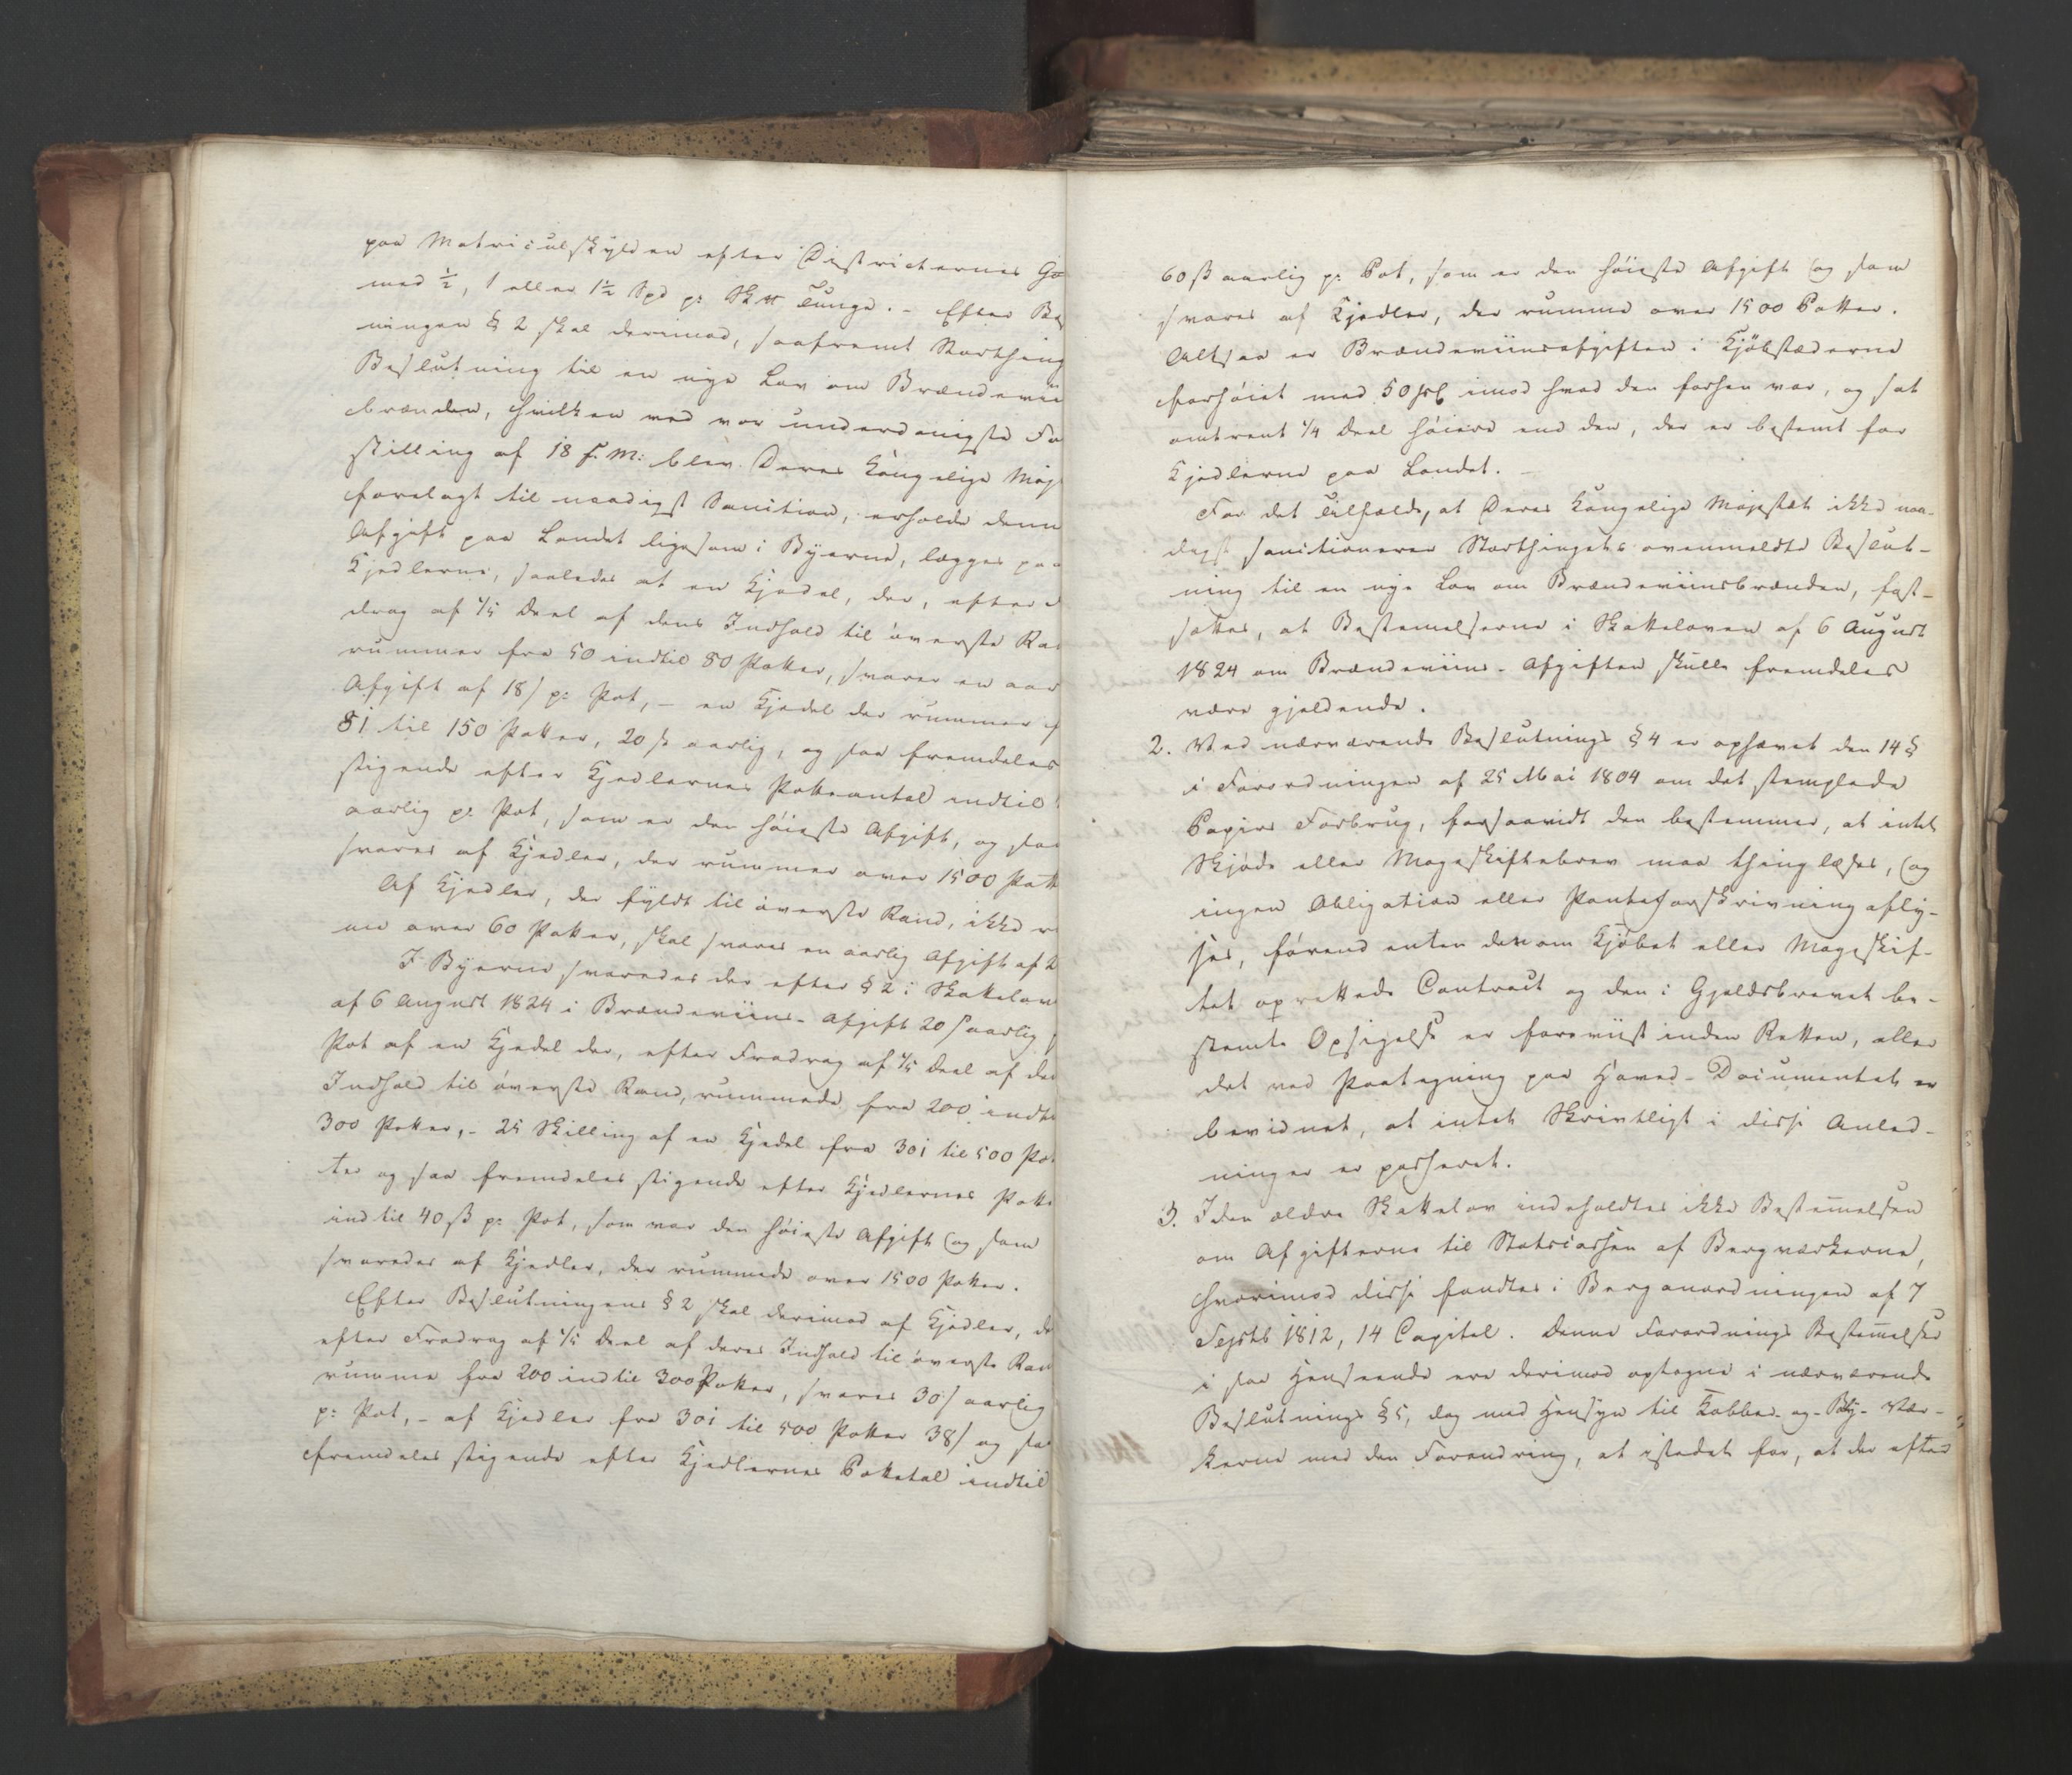 paa Matriculskylden efter Districternes
med ½, 1 eller 1½ Spd pr: Sk℔ Tunge. - Efter
ningen § 2 skal derimod, saafremt Storthing
Beslutning til en nye Lov om Brændevii
brænden, hvilken ved vor underdanigste
stilling af 18 f. M: blev Deres Kongelige Maj
forelagt til naadigst Sanction, erholde denne
Afgift paa Landet ligesom i Byerne, lægges paa
Kjedlerne, saaledes at en Kjedel, der, efter
drag af 1/5 Deel af dens Indhold til øverste
rummer fra 50 indtil 80 Potter, svarer en aar
Afgift af 18 s pr: Pot, - en Kjedel der rummer
81 til 150 Potter, 20 s aarlig, og saa fremdeles
stigende efter Kjedlernes Potteantal indtil
aarlig pr: Pot, som er den høieste Afgift, og som
svares af Kjedler, der rummer over 1500
Af Kjedler, der fyldt til øverste Rand, ikke
me over 60 Potter, skal svares en aarlig Afgift af
I Byerne svaredes der efter § 2 i Skattelov
af 6 August 1824 i Brændeviins-Afgift 20 s aarlig
Pot af en Kjedel der, efter Fradrag af 1/5 Deel af
Indhold til øverste Rand, rummede fra 200
300 Potter, - 25 Skilling af en Kjedel fra 301 til 500 Pot
ter og saa fremdeles stigende efter Kjedlernes
indtil 40 ß pr: Pot, som var den høieste Afgift og som
svaredes af Kjedler, der rummede over 1500 Potter.
Efter Beslutningens § 2 skal derimod af Kjedler,
efter Fradrag af 1/5 Deel af deres Indhold til øverste
rumme fra 200 indtil 300 Potter, svares 30 s aarlig
pr: Pot, - af Kjedler fra 301 til 500 Potter 38 s og
fremdeles stigende efter Kjedlernes Pottetal indtil
60 ß aarlig pr: Pot, som er den høieste Afgift og som
svares af Kjedler, der rumme over 1500 Potter.
Altsaa er Brændeviinsafgiften i Kjøbstæderne
forhøiet med 50 prC imod hvad den forhen var, og sat
omtrent 1/4 Deel høiere end den, der er bestemt for
Kjedlerne paa Landet. -
For det Tilfælde, at Deres Kongelige Majestæt ikke naa-
digst sanctionerer Storthingets ovenmeldte Beslut-
ning til en nye Lov om Brændeviinsbrænden, fast-
sættes, at Bestemmelserne i Skatteloven af 6 August
1824 om Brændeviins-Afgiften skulle fremdeles
være gjeldende.
2. Ved nærværende Beslutnings § 4 er ophævet den 14 §
i Forordningen af 25 Mai 1804 om det stemplede
Papirs Forbrug, forsaavidt den bestemmer, at intet
Skjøde eller Mageskiftebrev maa thinglæses, og
ingen Obligation eller Panteforskrivning afly-
ses, førend enten den om Kjøbet eller Mageskif-
tet oprettede Contract og den i Gjeldsbrevet be-
stemte Opsigelse er foreviist inden Retten, eller
det ved Paategning paa Hoved-Documentet er
bevidnet, at intet Skrivtligt i disse Anled-
ninger er passeret.
3. I den ældre Skattelov indeholdtes ikke Bestemmelsen
om Afgifterne til Statscassen af Bergværkerne,
hvorimod disse fandtes i Berganordningen af 7
Septbr 1812, 14 Capitel. Denne Forordnings Bestemmelser
i saa Henseende ere derimod optagne i nærværende
Beslutnings § 5, dog med Hensyn til Kobber- og - Bly- Vær-
kerne med den Forandring, at istedet for, at der efter